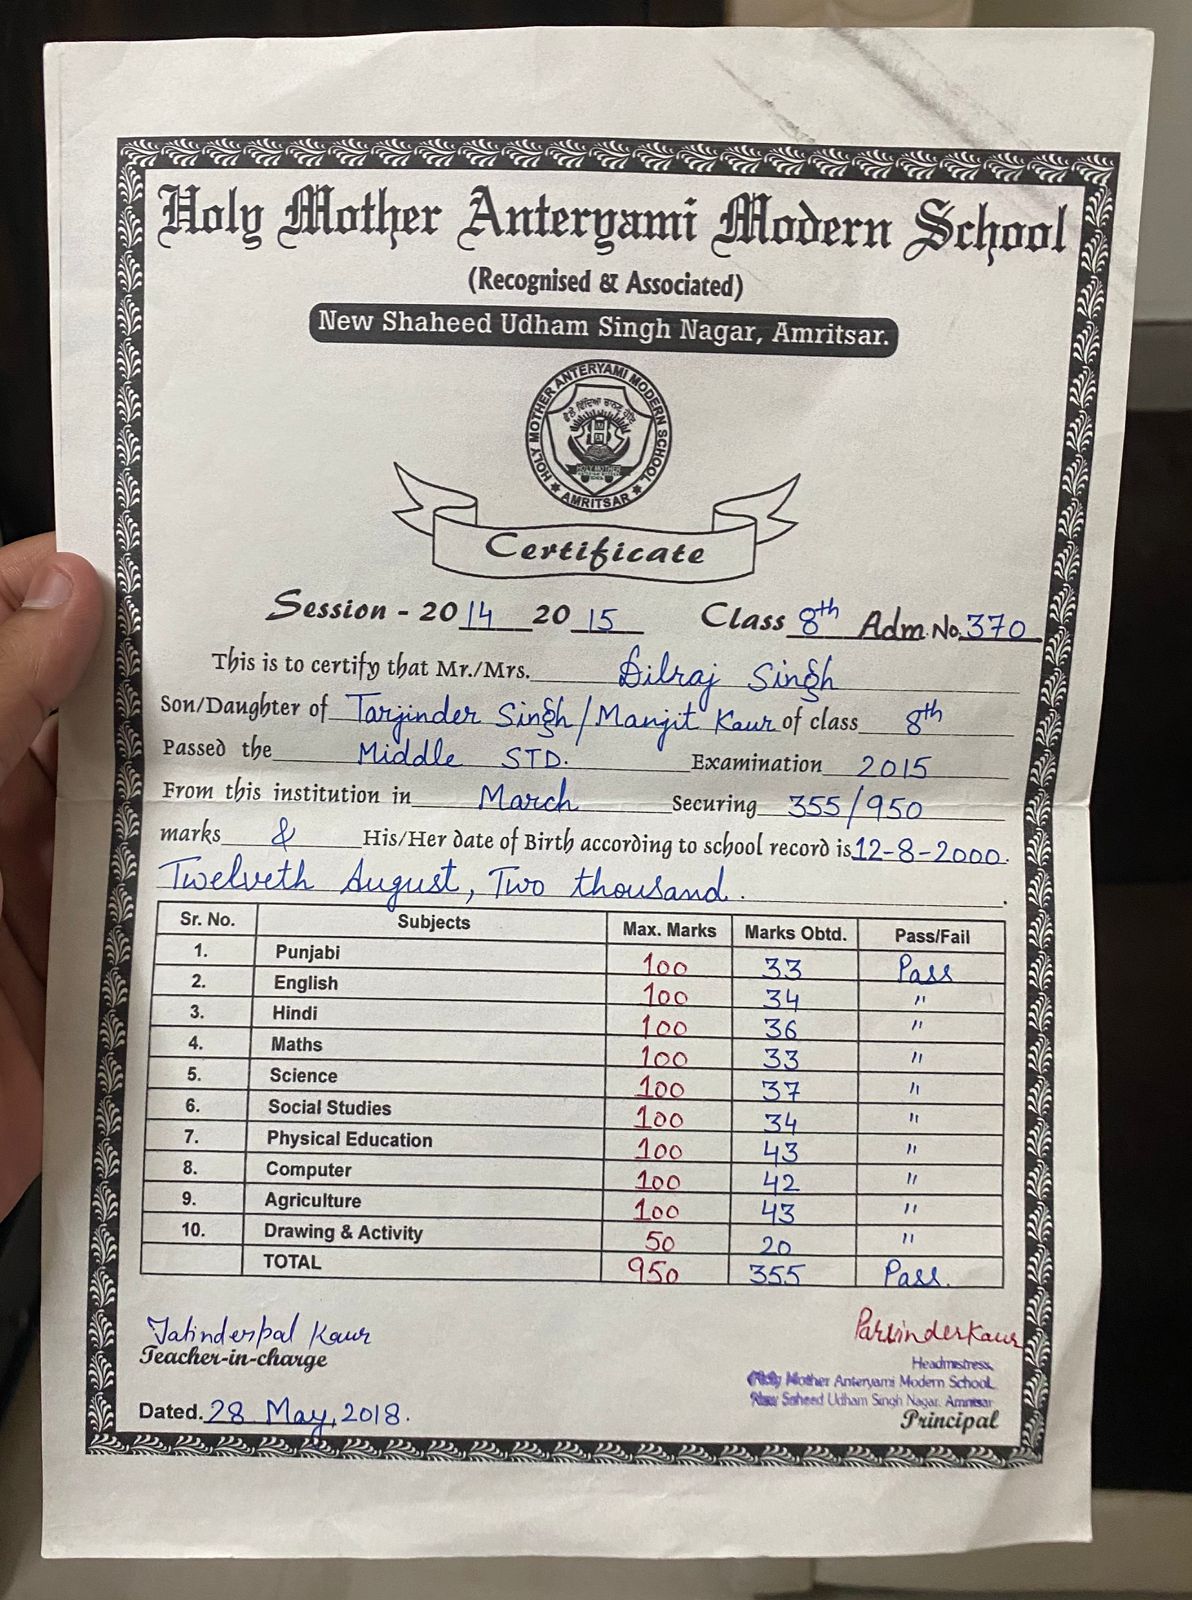 Holy Mother Anteryami Modern School
(Recognised & Associated)
New Shaheed Udham Singh Nagar, Amritsar.
HOLY MOTHER ANTERYAMI MODERN SCHOOL
HOLY MOTHER
★ AMRITSAR ★
Certificate
Session - 2014 2015 Class 8th Adm. No. 370
This is to certify that Mr./Mrs. Dilraj Singh
Son/Daughter of Tarjinder Singh/Manjit Kaur of class 8th
Passed the Middle STD. Examination 2015
From this institution in March Securing 355/950
marks & His/Her date of Birth according to school record is 12-8-2000.
Twelveth August, Two thousand.
Sr. No. Subjects Max. Marks Marks Obtd. Pass/Fail
1. Punjabi 100 33 Pass
2. English 100 34 "
3. Hindi 100 36 "
4. Maths 100 33 "
5. Science 100 37 "
6. Social Studies 100 34 "
7. Physical Education 100 43 "
8. Computer 100 42 "
9. Agriculture 100 43 "
10. Drawing & Activity 50 20 "
TOTAL 950 355 Pass.
Jatinderpal Kaur ParvinderKaur
Teacher-in-charge Headmistress,
Holy Mother Anteryami Modern School,
New Saheed Udham Singh Nagar. Amritsar
Dated. 28 May, 2018. Principal